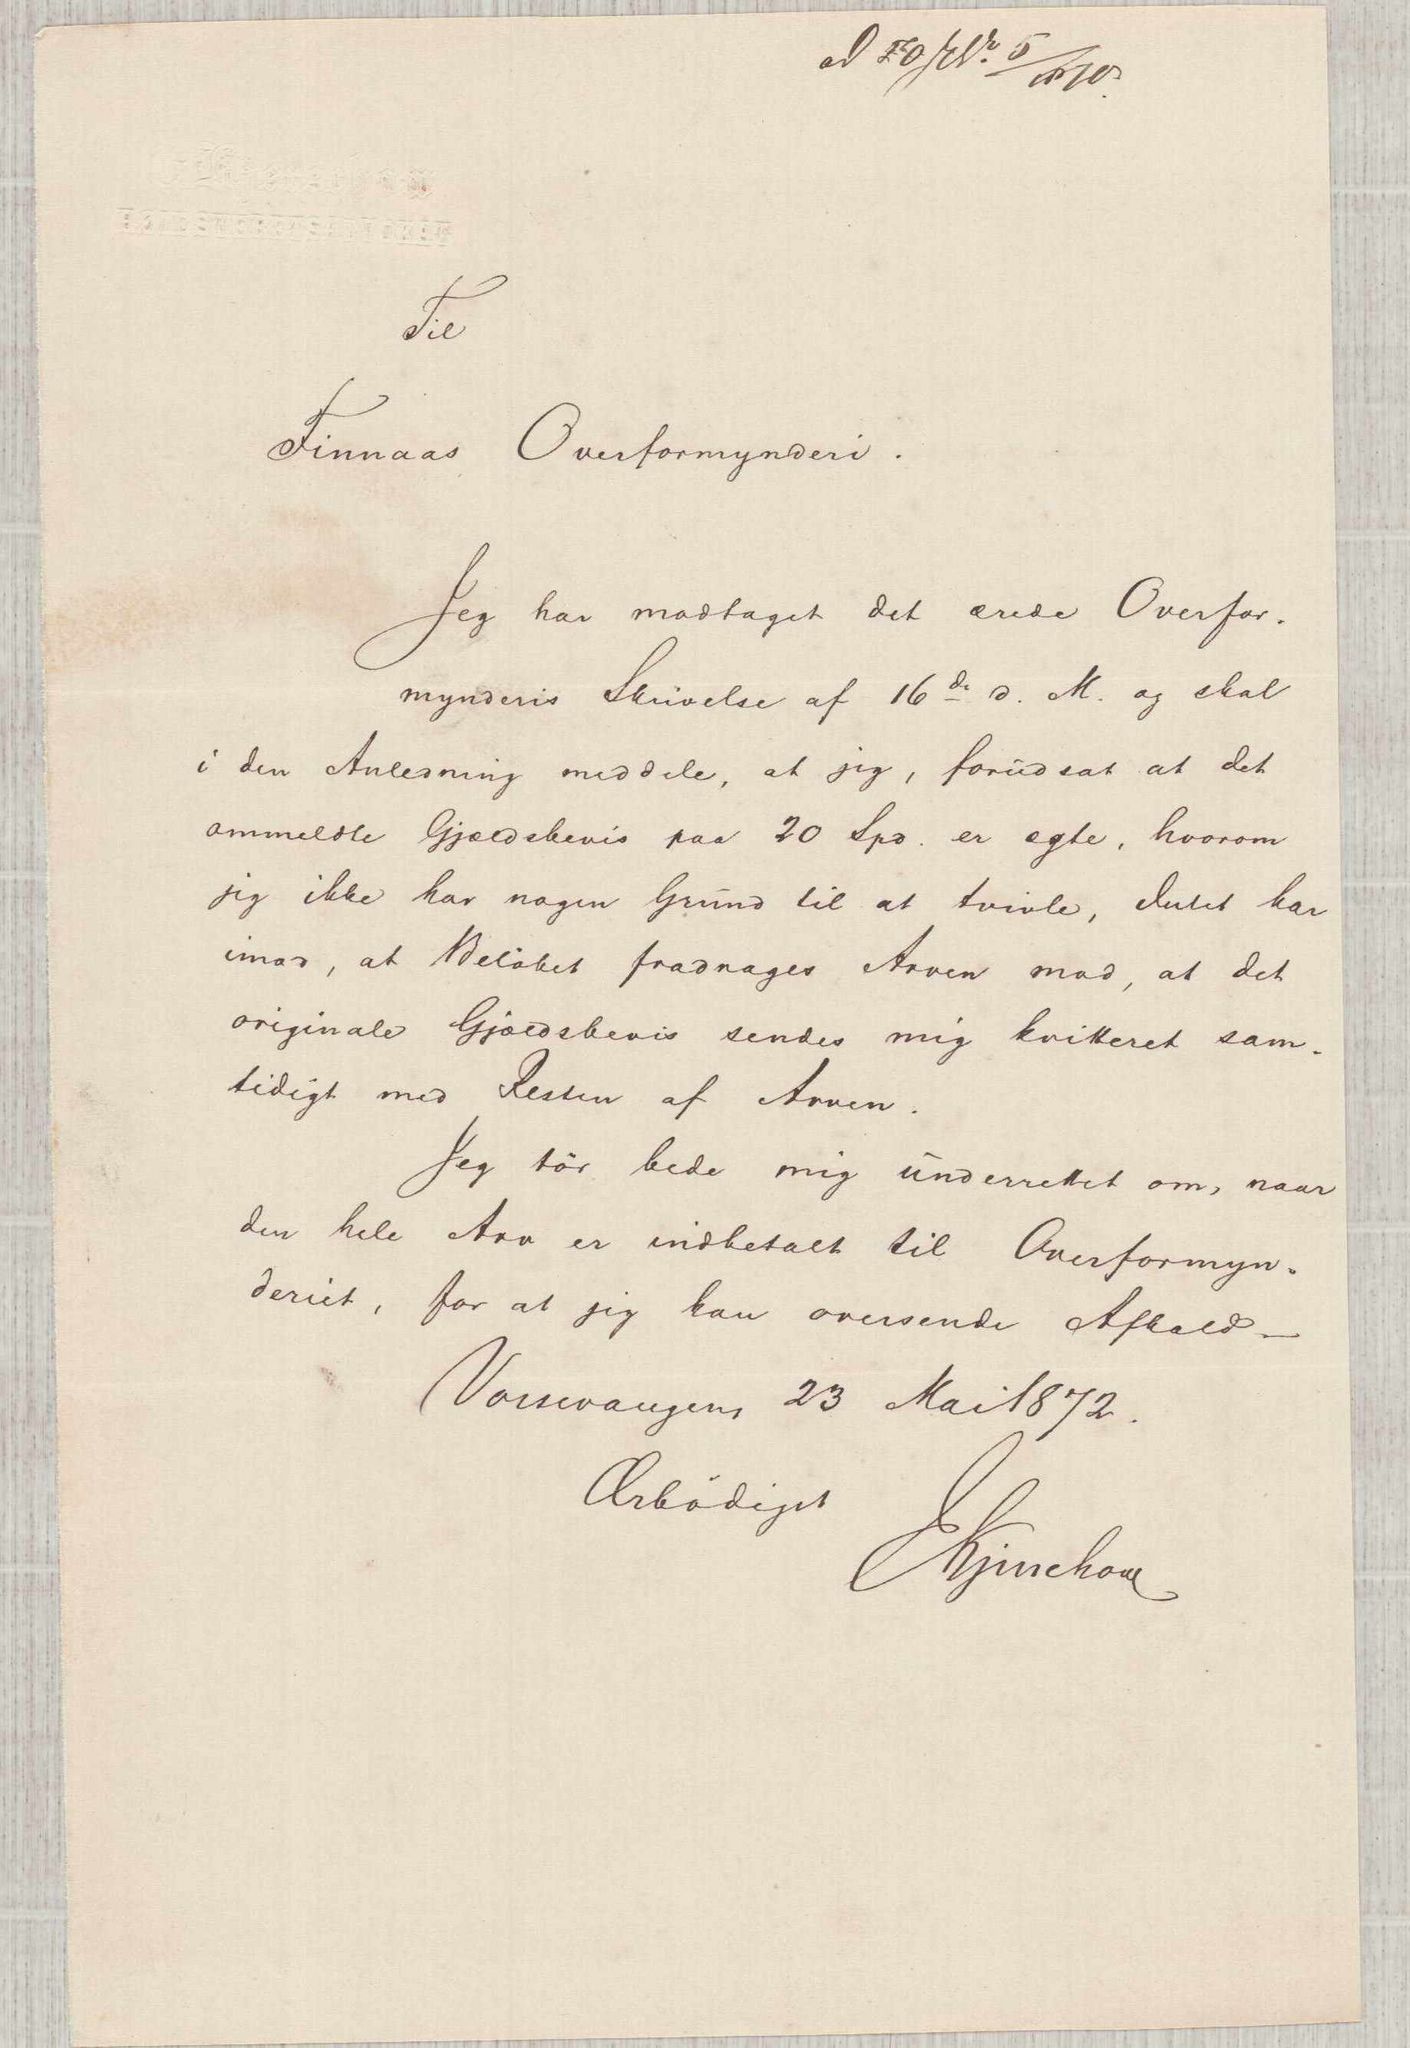 Til
Finnaas Overformynderi.
Jeg har modtaget det ærede Overfor-
mynderis Skrivelse af 16de d. M. og skal
i den Anledning meddele, at jeg, forudsat at det
ommeldte Gjældsbevis paa 20 Spd. er ægte, hvorom
jeg ikke har nogen Grund til at tvivle, Intet har
imod, at Beløbet fradrages Arven mod, at det
originale Gjældsbevis sendes mig kvitteret sam-
tidigt med Resten af Arven.
Jeg tör bede mig underrettet om, naar
den hele Arv er indbetalt til Overformyn-
deriet, for at jeg kan oversende Afkald—
Vossevangen, 23 Mai 1872.
Ærbödigst